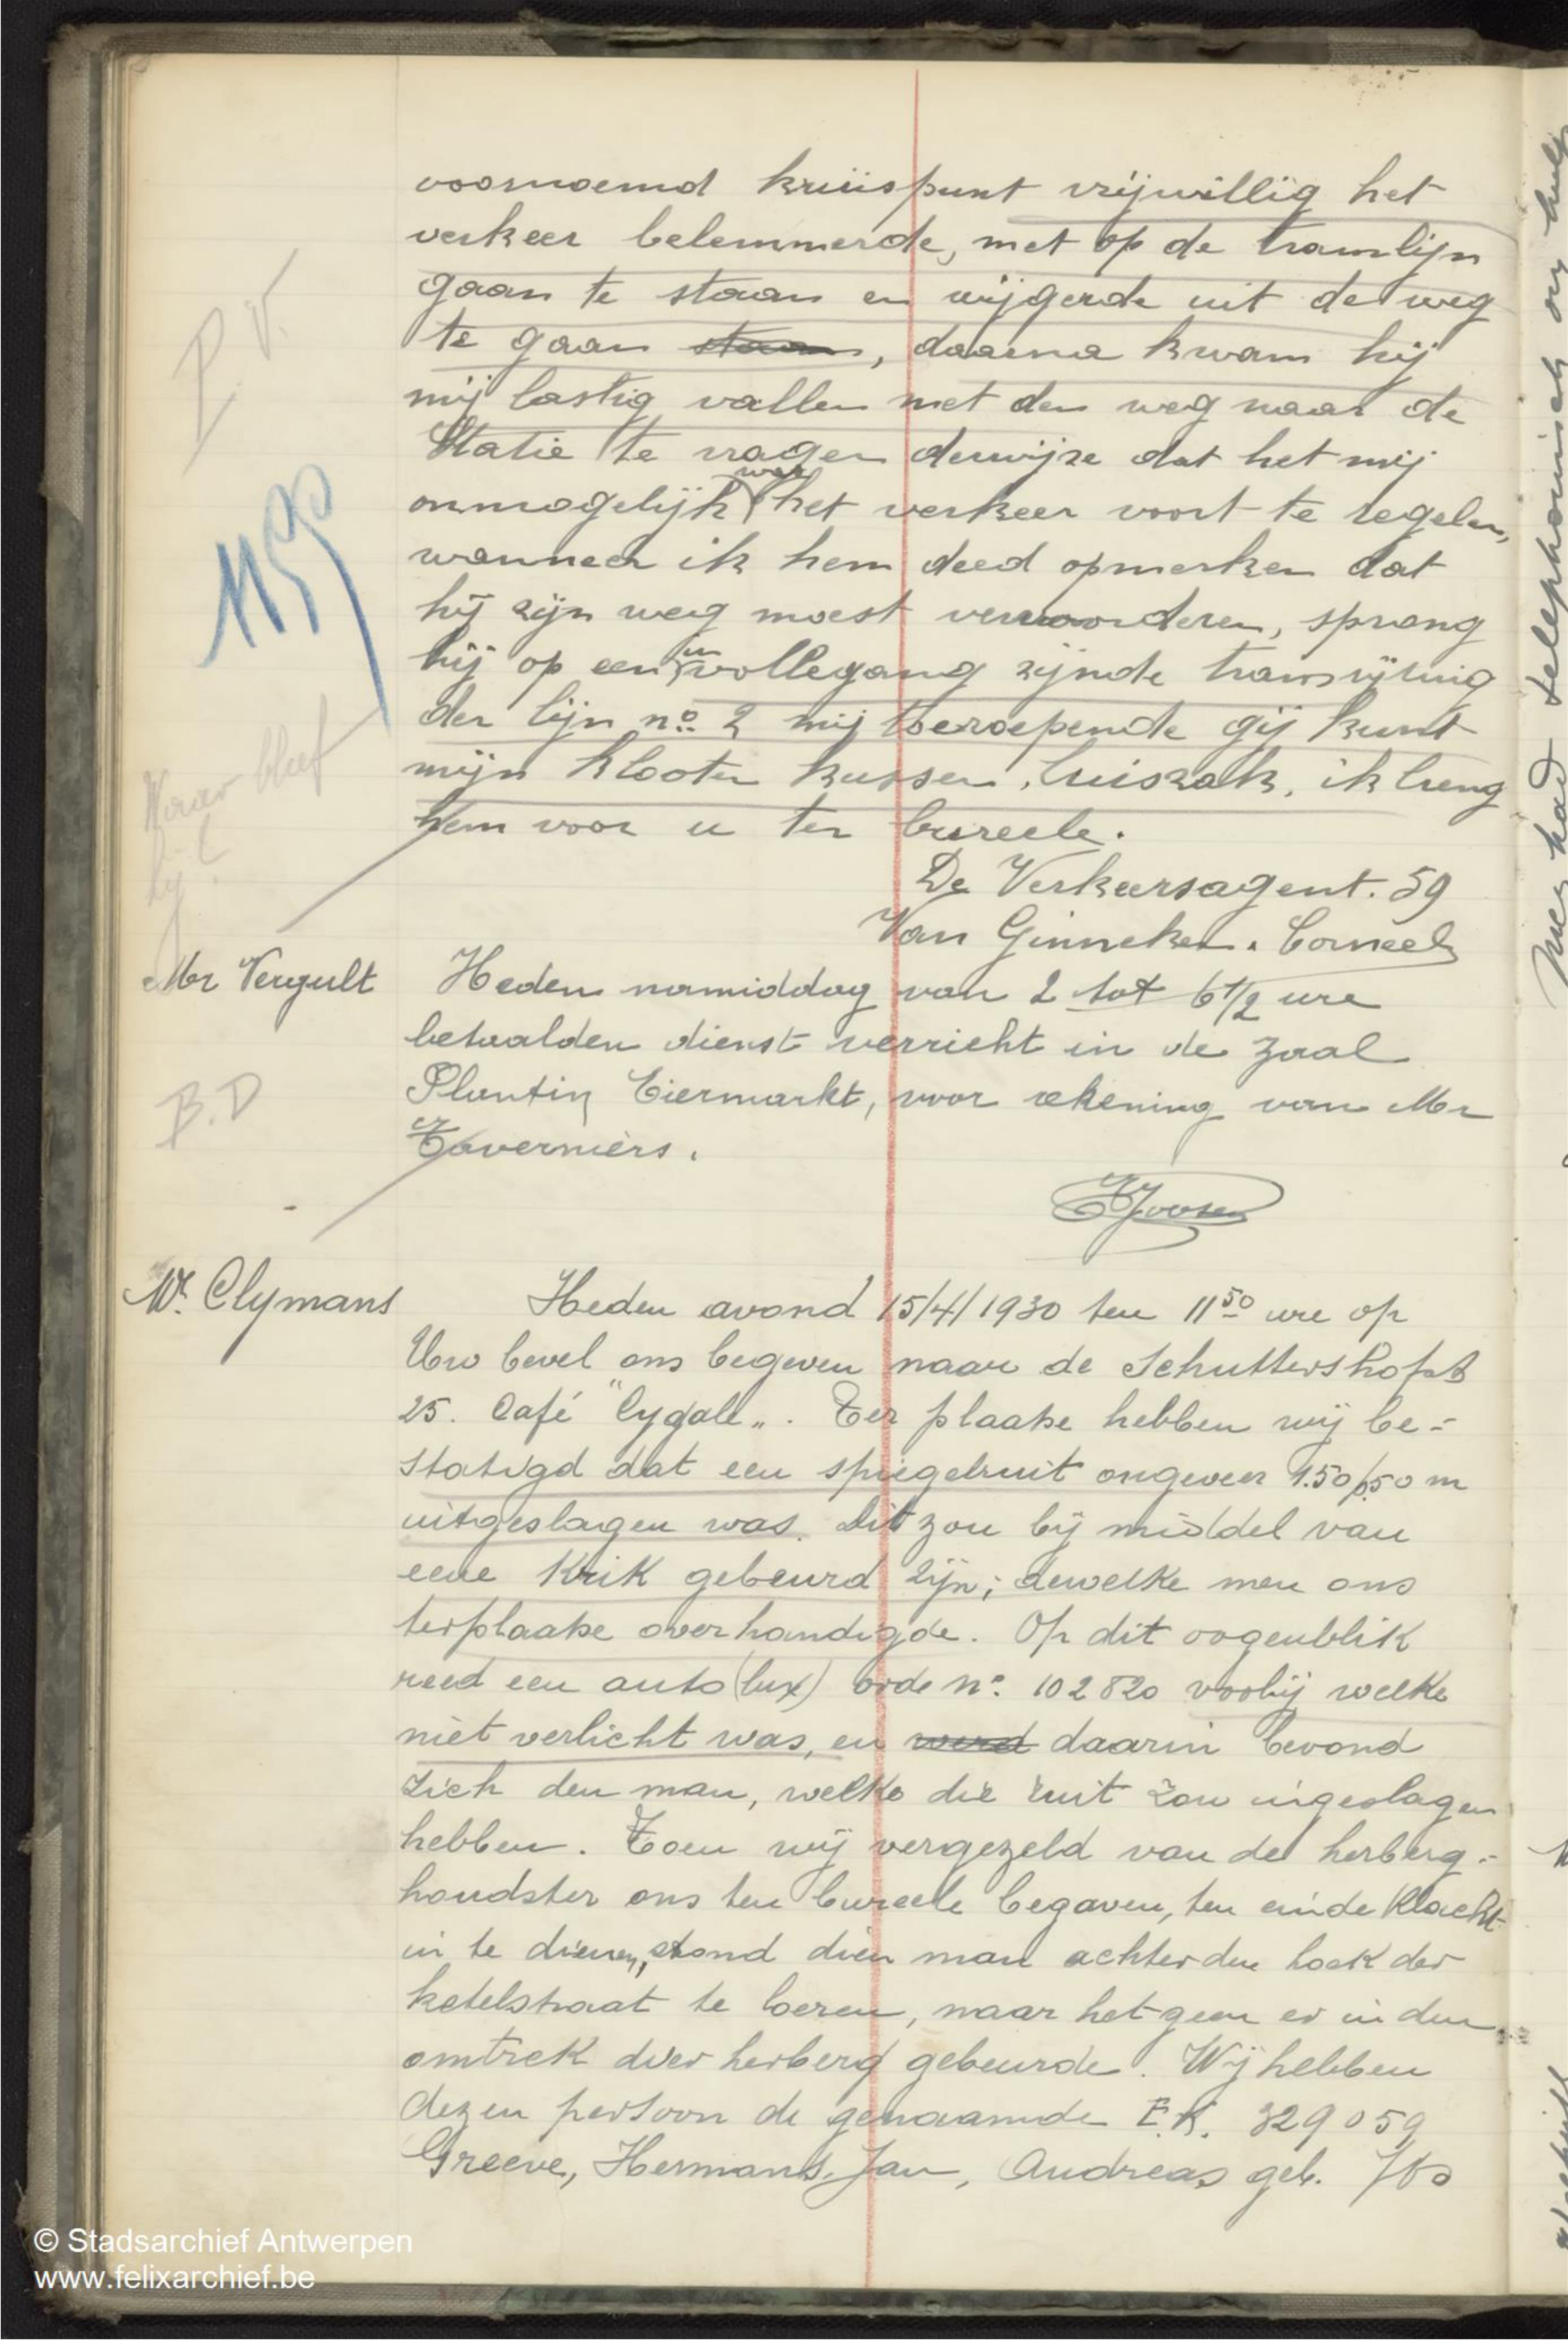 voornoemd kruispunt vrijwillig het
verkeer belemmerde, met op de tramlijn
gaan te staan en wijgerde uit de weg
te gaan staan, daarna kwam hij
mij lastig vallen met den weg naar de
Statie te vragen derwijze dat het mij
onmogelijk was het verkeer voort te regelen,
wanneer ik hem deed opmerken dat
hij zijn weg moest vervoorderen, sprong
hij op een in vollegang zijnde tramrijtuig
der lijn no. 2 mij toeroepende gij kunt
mijn klooten kussen, luiszak, ik breng
hem voor u ten bureele.
De Verkeersagent. 59
Van Ginneken. Corneel
P.V.
1159
Waar bleef
hij
Mr Vergult
Heden namiddag van 2 tot 6 1/2 ure
betaalden dienst verricht in de zaal
Plantin Eiermarkt, voor rekening van Mr
Taverniers.
B.D
Joosen
Mr. Clymans
Heden avond 15/4/1930 ten 11 50 ure op
Uw bevel ons begeven naar de Schuttershofst
25. Café "Cygale". Ter plaatse hebben wij be-
statigd dat een spiegelruit ongeveer 1.50/0.50 m
uitgeslagen was. Dit zou bij middel van
eene Krik gebeurd zijn; dewelke men ons
terplaatse overhandigde. Op dit oogenblik
reed een auto (lux) orde no. 102820 voorbij welke
niet verlicht was, en werd daarin bevond
zich den man, welke die ruit zou uigeslagen
hebben. Toen wij vergezeld van de herberg-
houdster ons ten bureele begaven, ten einde klacht
in te dienen, stond dien man achter den hoek der
ketelstraat te loeren, naar hetgeen er in den
omtrek dier herberg gebeurde. Wij hebben
dezen persoon de genaamde E.K. 329059
Greeve, Hermans, Jan, Andreas geb.
© Stadsarchief Antwerpen
www.felixarchief.be